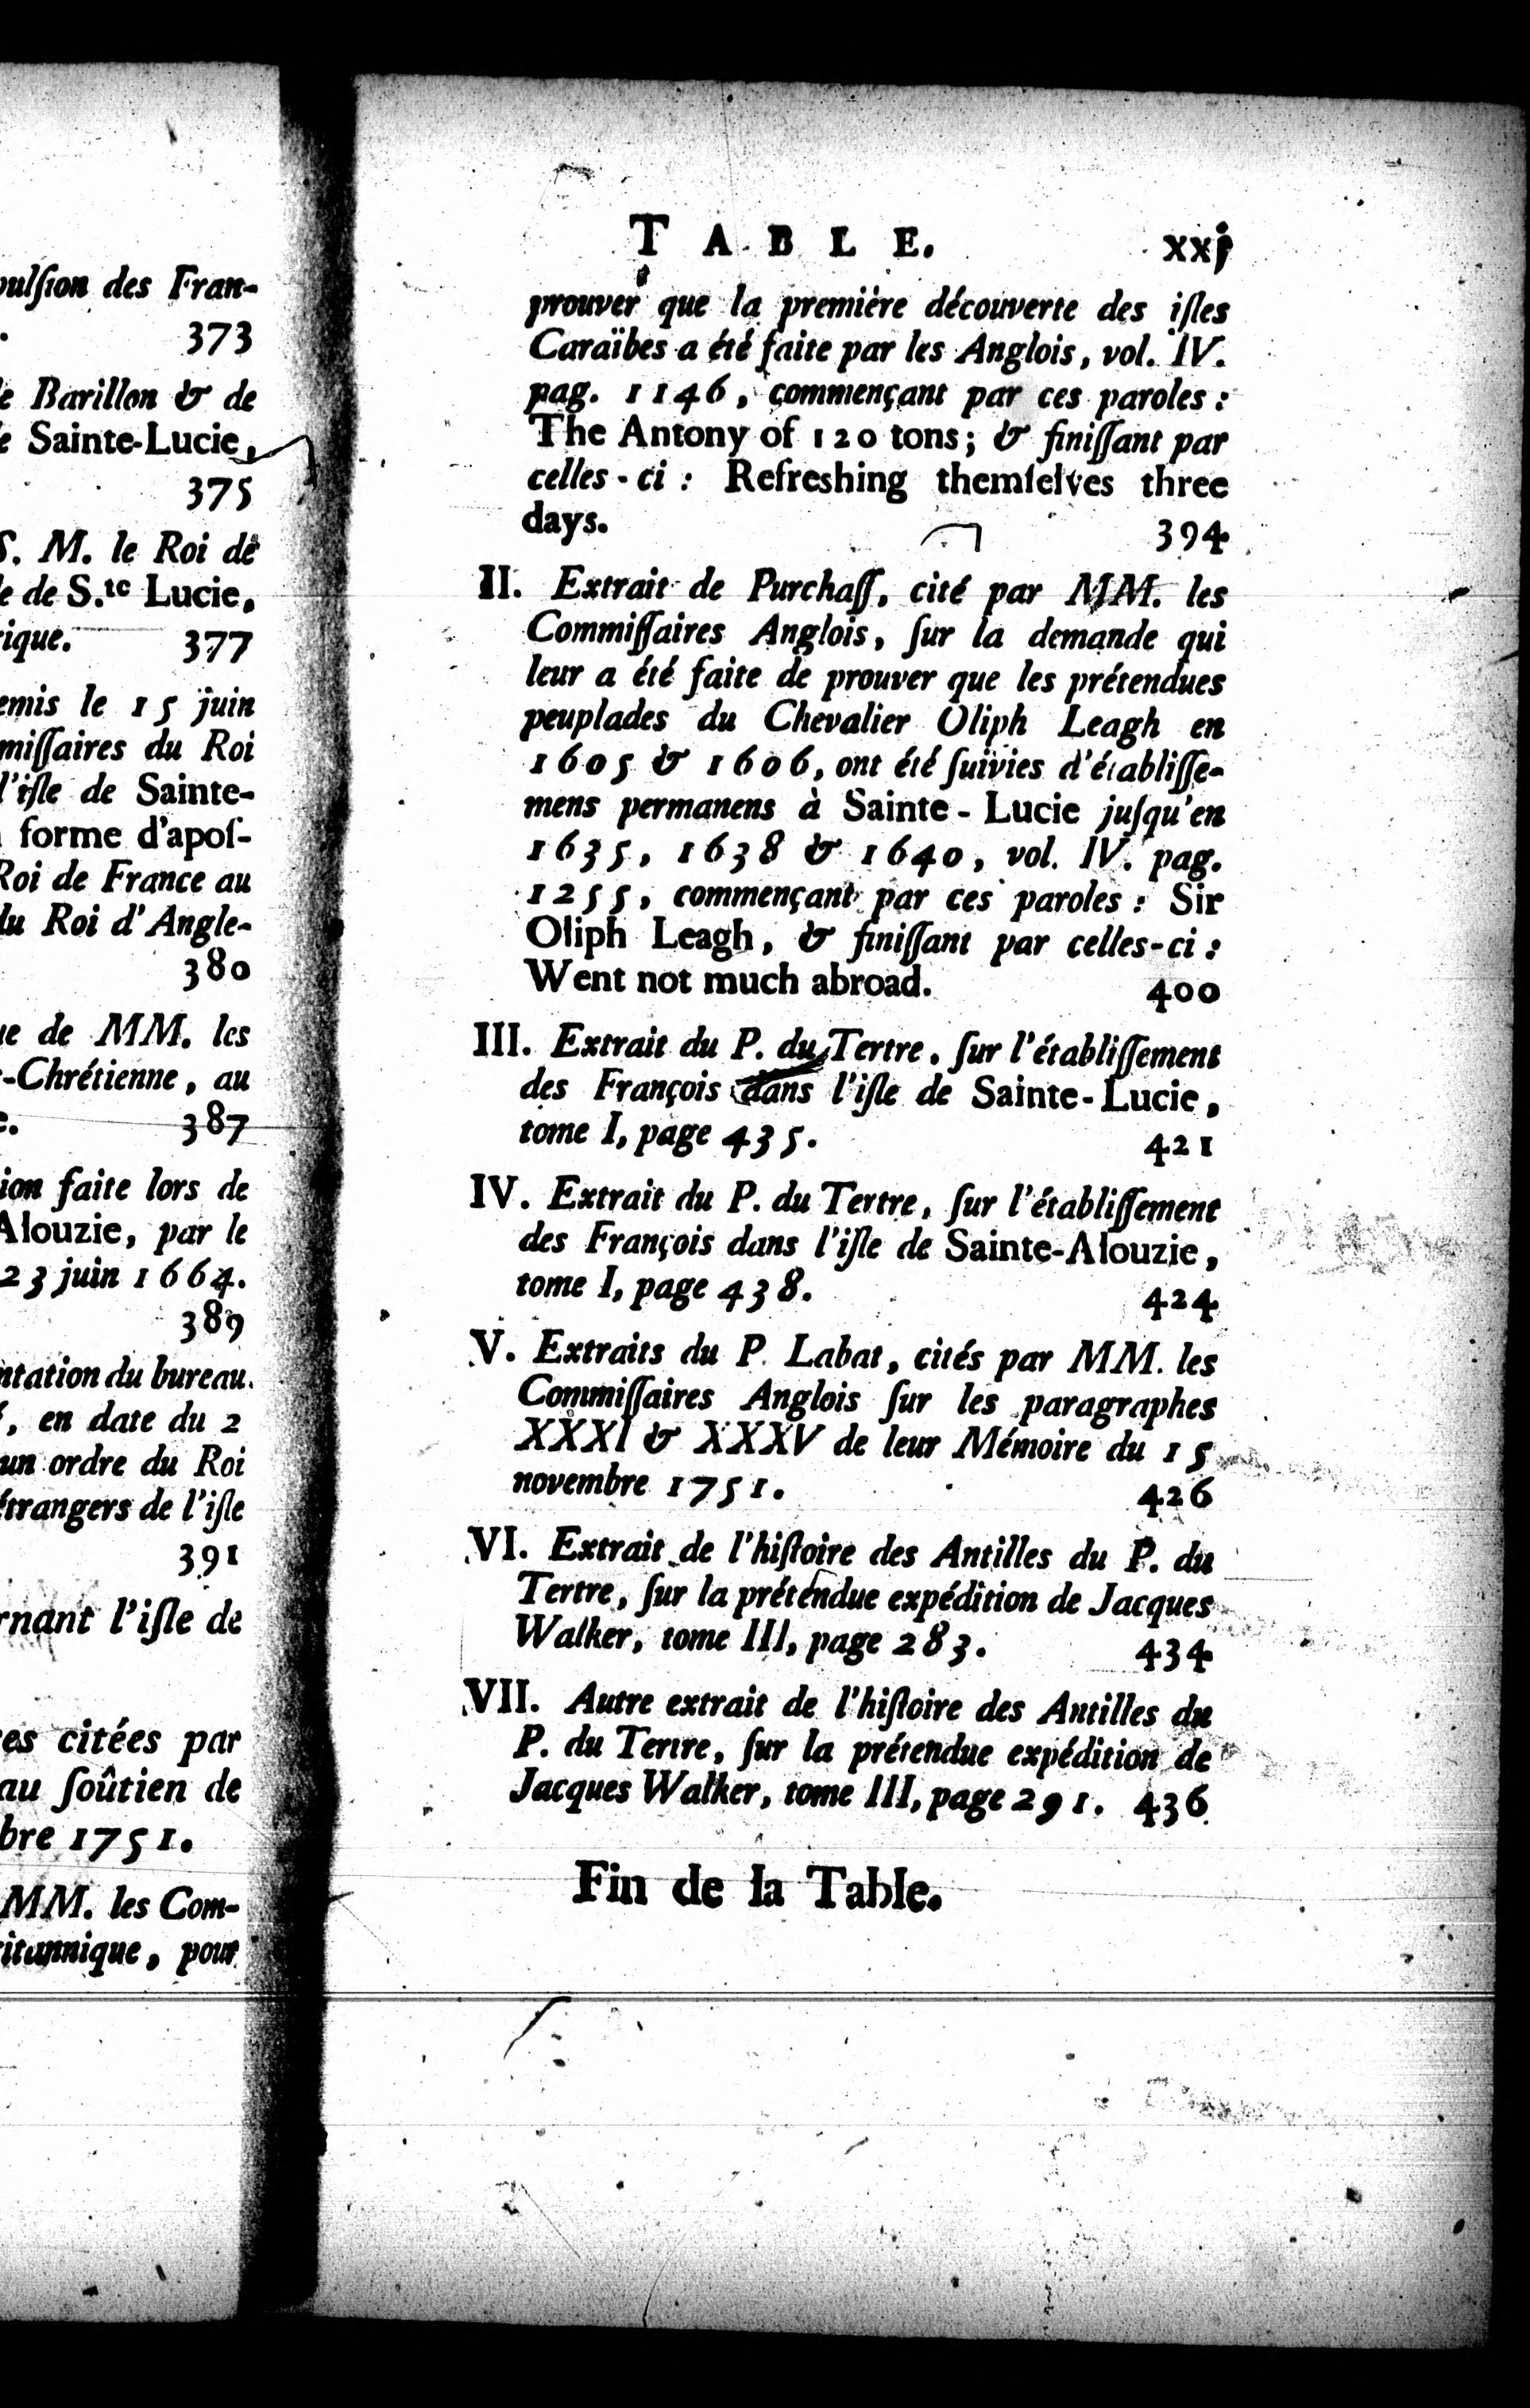 pulſion des Fran-
373
e Barillon & de
e Sainte-Lucie,
375
S. M. le Roi de
e de S.te Lucie,
rique. 377
emis le 15 juin
miſſaires du Roi
l'iſle de Sainte-
forme d'apoſ-
Roi de France au
du Roi d'Angle-
380
ue de MM. les
-Chrétienne, au
e. 387
ion faite lors de
Alouzie, par le
23 juin 1664.
389
ntation du bureau
, en date du 2
un ordre du Roi
étrangers de l'iſle
391
rnant l'iſle de
es citées par
au ſoûtien de
bre 1751.
MM. les Com-
ritannique, pour
TABLE. xxj
prouver que la première découverte des iſles
Caraïbes a été faite par les Anglois, vol. IV.
pag. 1146, commençant par ces paroles :
The Antony of 120 tons; & finiſſant par
celles-ci : Refreshing themſelves three
days. 394
II. Extrait de Purchaſſ, cité par MM. les
Commiſſaires Anglois, ſur la demande qui
leur a été faite de prouver que les prétendues
peuplades du Chevalier Oliph Leagh en
1605 & 1606, ont été ſuivies d'établiſſe-
mens permanens à Sainte-Lucie juſqu'en
1635, 1638 & 1640, vol. IV. pag.
1255, commençant par ces paroles : Sir
Oliph Leagh, & finiſſant par celles-ci :
Went not much abroad. 400
III. Extrait du P. du Tertre, ſur l'établiſſement
des François dans l'iſle de Sainte-Lucie,
tome I, page 435. 421
IV. Extrait du P. du Tertre, ſur l'établiſſement
des François dans l'iſle de Sainte-Alouzie,
tome I, page 438. 424
V. Extraits du P. Labat, cités par MM. les
Commiſſaires Anglois ſur les paragraphes
XXXI & XXXV de leur Mémoire du 15
novembre 1751. 426
VI. Extrait de l'hiſtoire des Antilles du P. du
Tertre, ſur la prétendue expédition de Jacques
Walker, tome III, page 283. 434
VII. Autre extrait de l'hiſtoire des Antilles du
P. du Tertre, ſur la prétendue expédition de
Jacques Walker, tome III, page 291. 436
Fin de la Table.